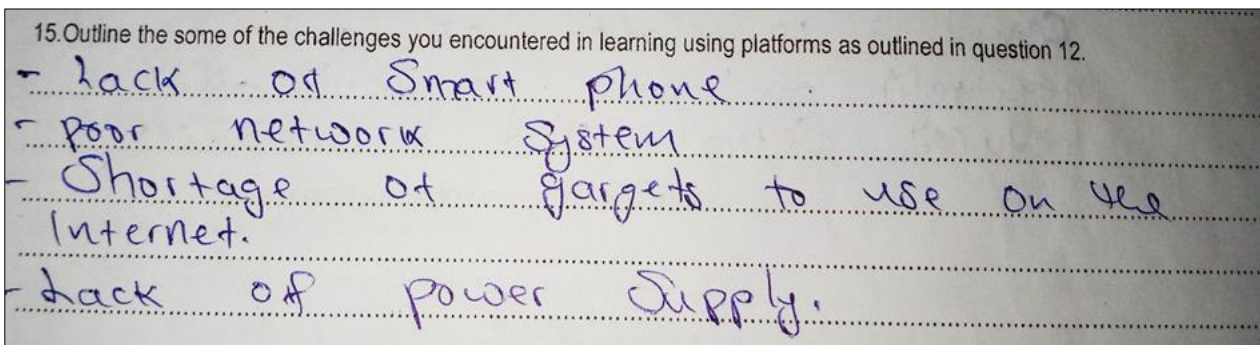 15.Outline the some of the challenges you encountered in learning using platforms as outlined in question 12.
- Lack of Smart phone
- poor network System
- Shortage of gargets to use on the
Internet.
- Lack of power Supply.